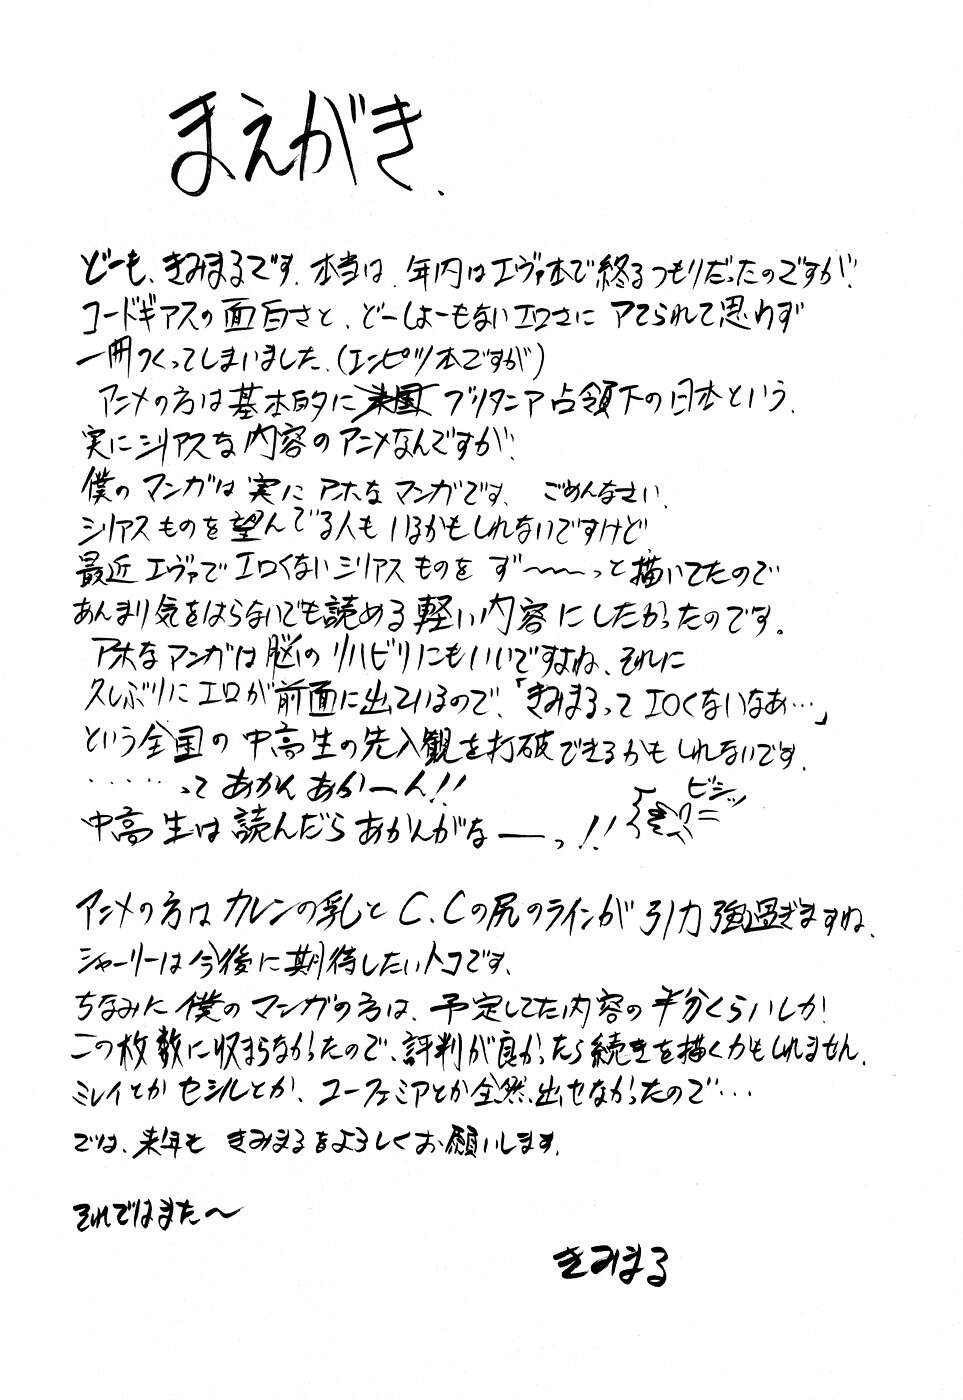 まえがき、
どーも、きみまるです。本当は、年内はエヴァ本で終るつもりだったのですが、
コードギアスの面白さと、どーしよーもないエロさに アてられて思わず
一冊つくってしまいました。(エンピツ本ですが)
アニメの方は基本的に米国ブリタニア占領下の日本という、
実にシリアスな内容のアニメなんですが、
僕のマンガは実に アホなマンガです、 ごめんなさい、
シリアスものを望んでる人も いるかもしれないですけど
最近 エヴァでエロくないシリアスものを ず〜〜〜っと描いてたので
あんまり気をはらないでも読める軽い内容にしたかったのです。
アホなマンガは脳のリハビリにもいいですよね、それに
久しぶりにエロが前面に出ているので、「きみまるってエロくないなあ…」
という全国の中高生の先入観を打破できるかもしれないです。
・・・・・ってあかんあかーん!!
ビシッ
中高生は読んだらあかんがなーっ!!
アニメの方はカレンの乳とC.Cの尻のラインが引力強過ぎますね、
シャーリーは今後に期待したいトコです、
ちなみに僕のマンガの方は、予定してた内容の半分くらいしか!
この枚数に収まらなかったので、評判が良かったら続きを描くかもしれません、
ミレイとかセシルとか、ユーフェミアとか全然出せなかったので・・・
では、来年も きみまるをよろしくお願いします。
それではまた〜
きみまる